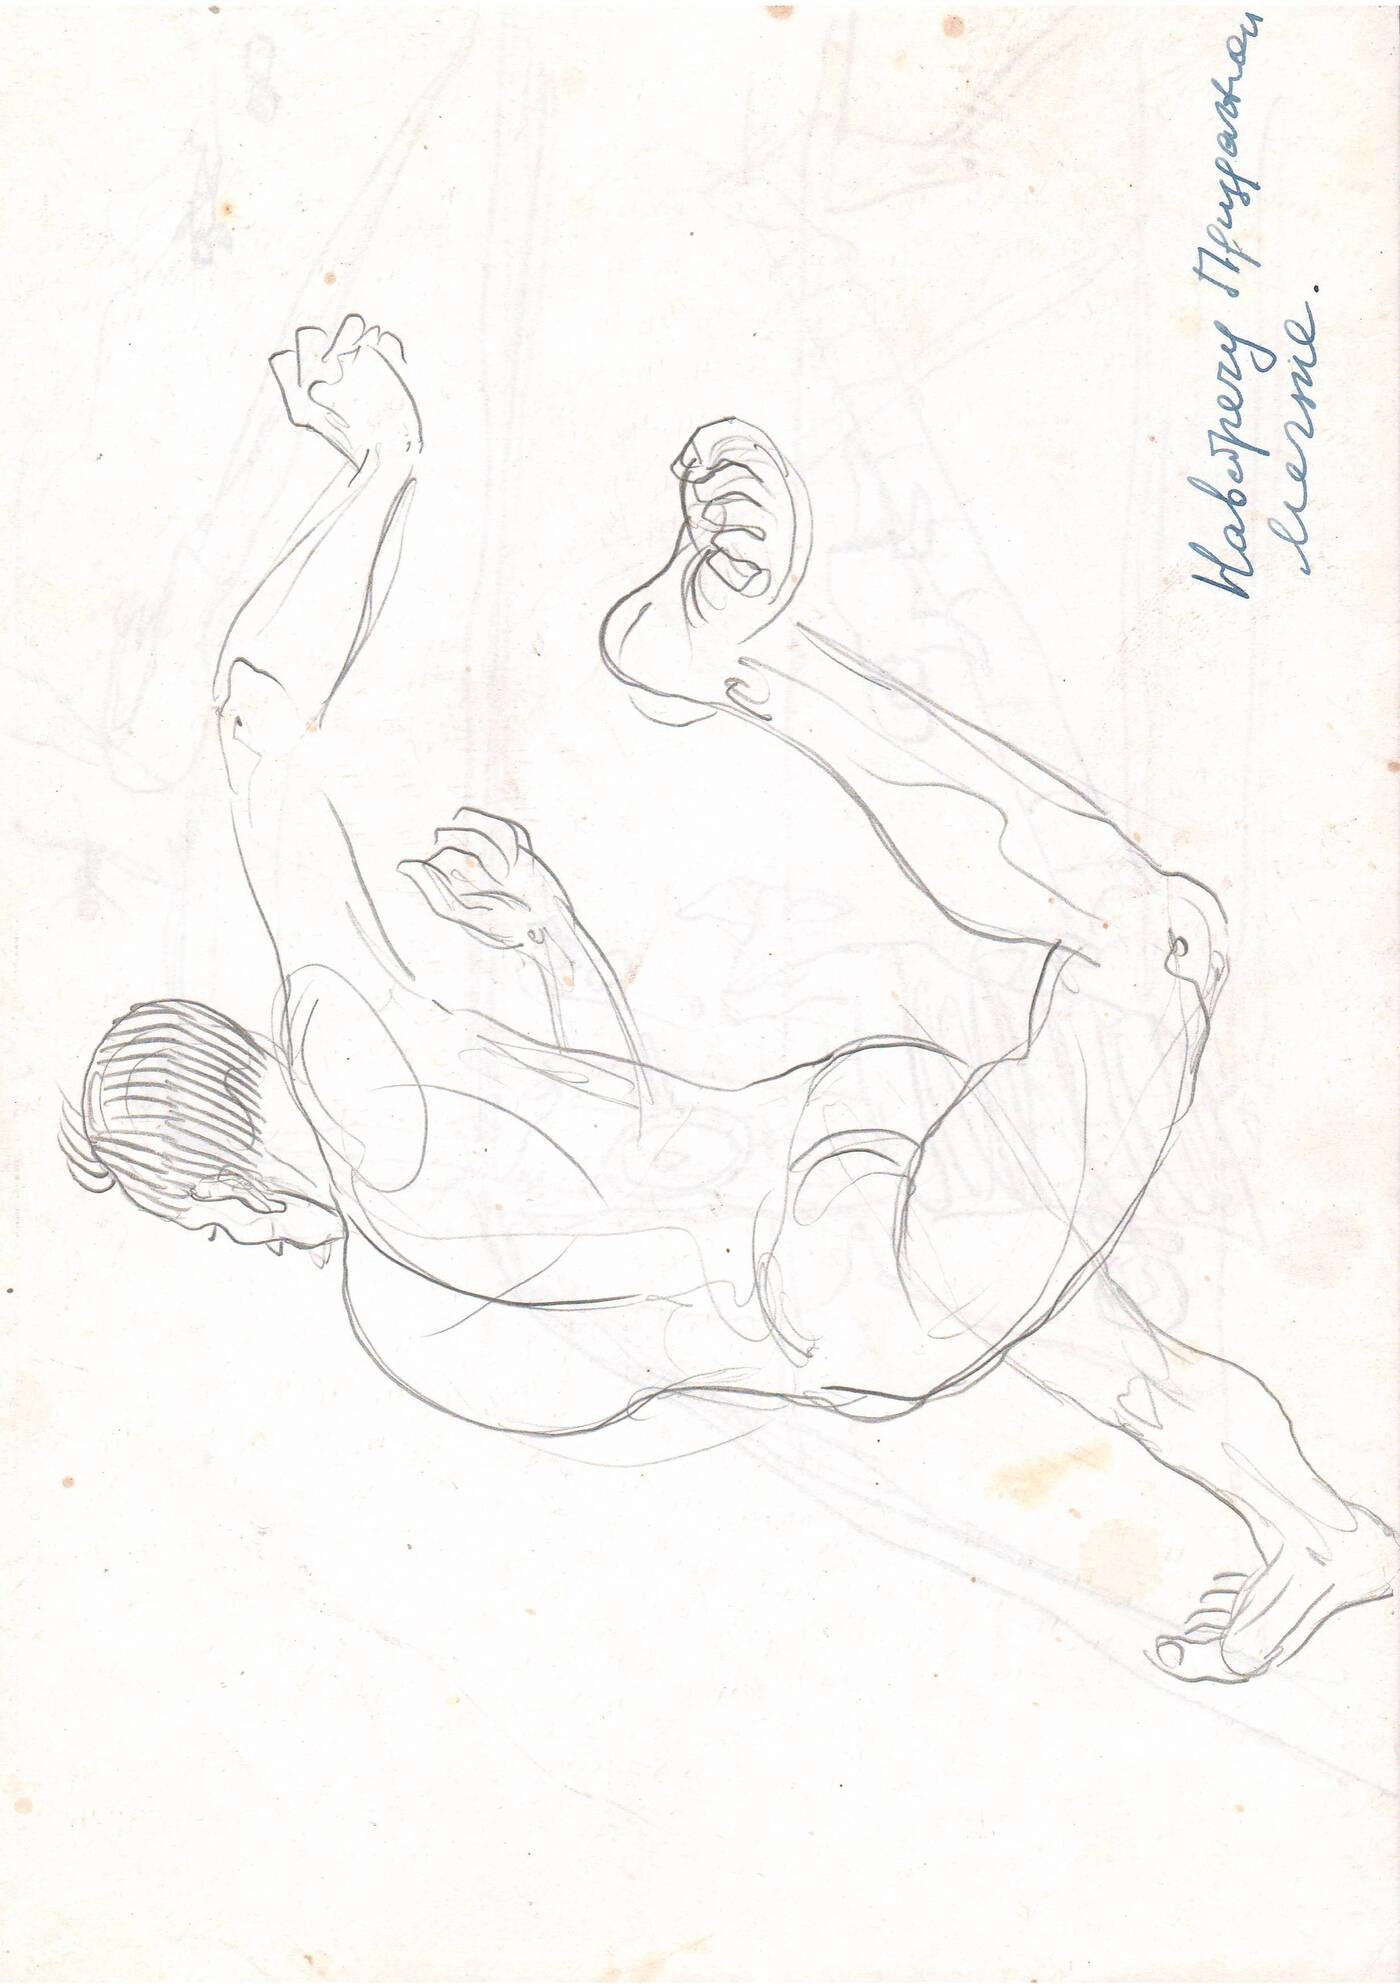 Навстречу Призрачной
мечте.